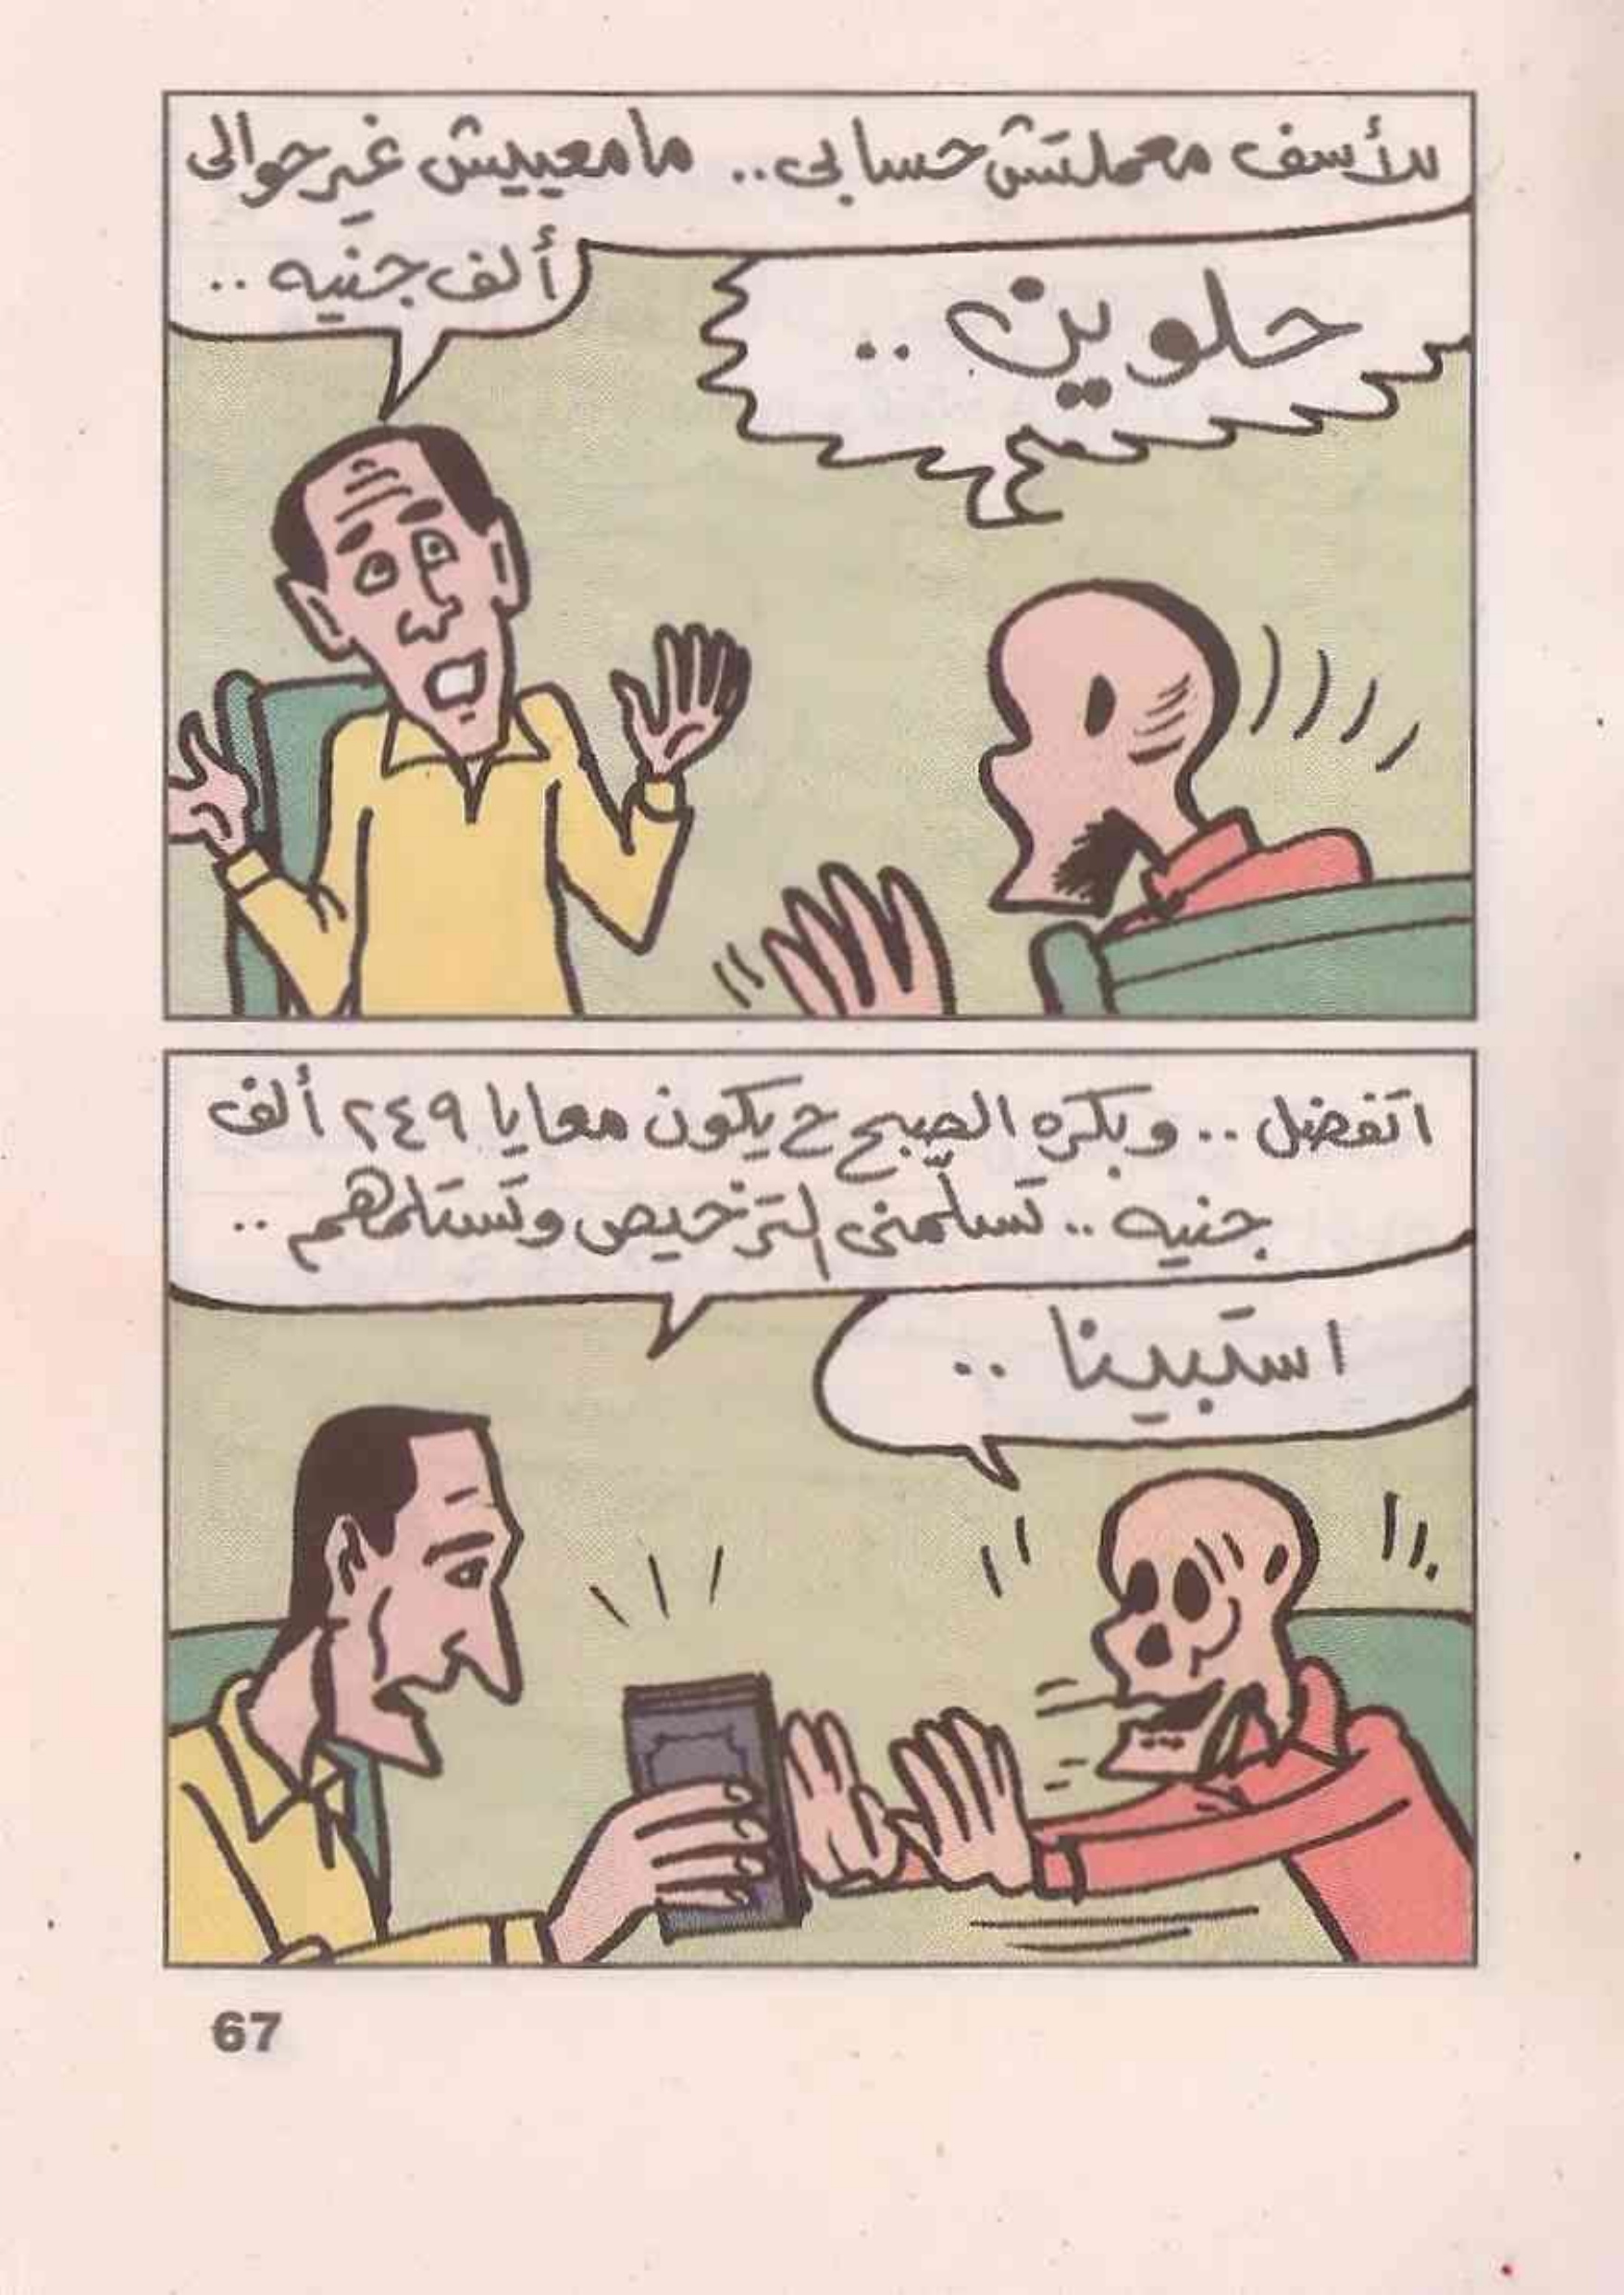 للأسف معملتش حسابى.. مامعييش غير حوالى
ألف جنيه..
حلوين..
اتفضل.. وبكره الصبح ح يكون معايا ٢٤٩ ألف
جنيه.. تسلّمنى الترخيص وتستلمهم..
استبينا..
67